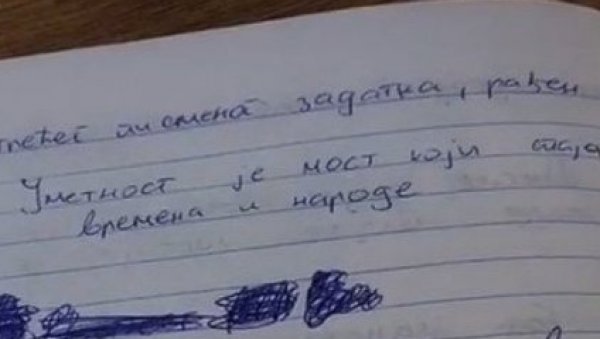 трећег писмена задатка, рађен
Уметност је мост који спаја
времена и народе